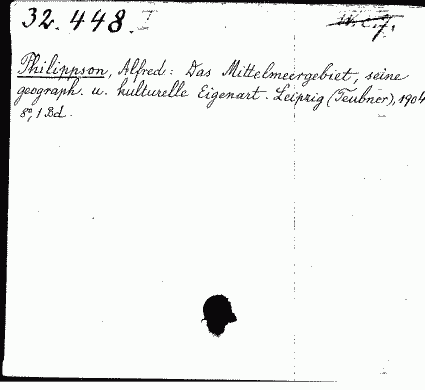 32.448. I
Philippson, Alfred: Das Mittelmeergebiet, seine
geograph. u. kulturelle Eigenart. Leipzig (Teubner), 1904
8°, 1 Bd.